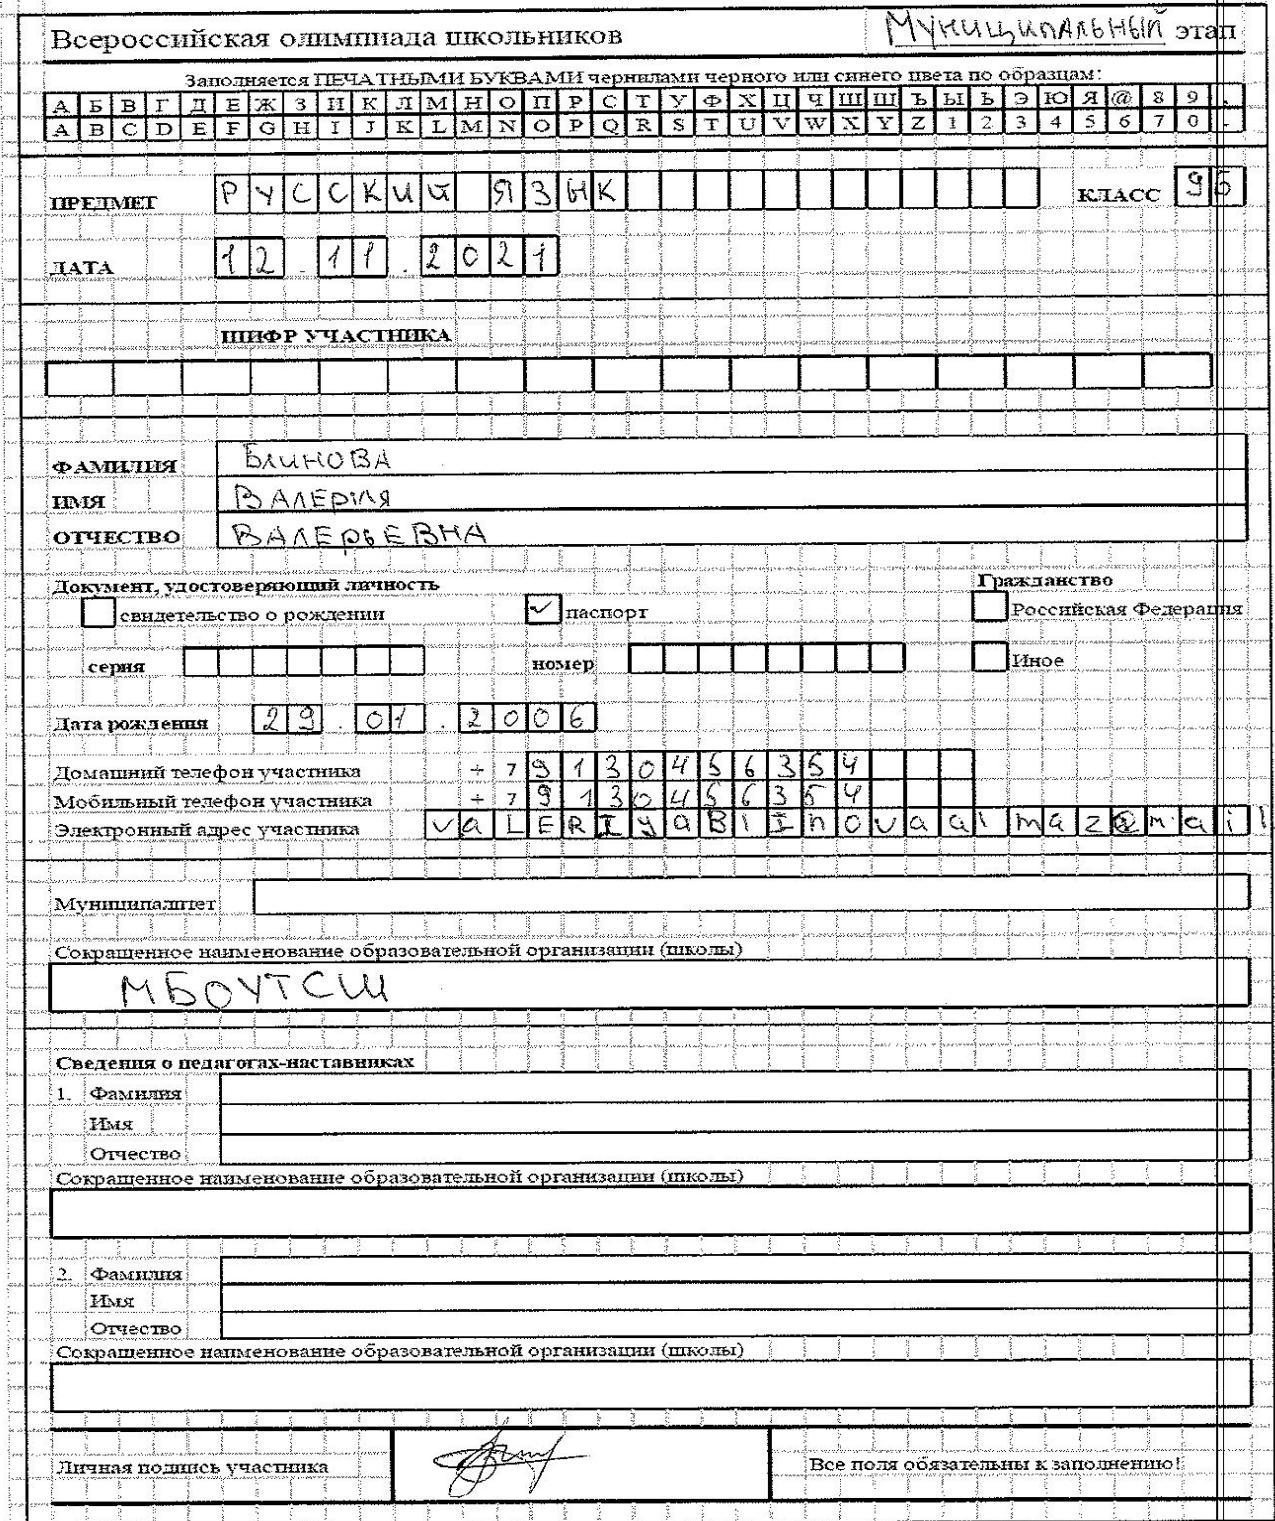 Всероссийская олимпиада школьников МУНИЦИПАЛЬНЫЙ этап
Заполняется ПЕЧАТНЫМИ БУКВАМИ чернилами черного или синего цвета по образцам:
А Б В Г Д Е Ж З И К Л М Н О П Р С Т У Ф Х Ц Ч Ш Щ Ъ Ы Ь Э Ю Я @ 8 9 .
A B C D E F G H I J K L M N O P Q R S T U V W X Y Z 1 2 3 4 5 6 7 0 -
ПРЕДМЕТ РУССКИЙ ЯЗЫК КЛАСС 9Б
ДАТА 12.11.2021
ШИФР УЧАСТНИКА
ФАМИЛИЯ БЛИНОВА
ИМЯ ВАЛЕРИЯ
ОТЧЕСТВО ВАЛЕРЬЕВНА
Документ, удостоверяющий личность Гражданство
свидетельство о рождении паспорт Российская Федерация
серия номер Иное
Дата рождения 29.01.2006
Домашний телефон участника +79130456354
Мобильный телефон участника +79130456354
Электронный адрес участника
Муниципалитет
Сокращенное наименование образовательной организации (школы)
МБОУТСШ
Сведения о педагогах-наставниках
1. Фамилия
Имя
Отчество
Сокращенное наименование образовательной организации (школы)
2. Фамилия
Имя
Отчество
Сокращенное наименование образовательной организации (школы)
Личная подпись участника Все поля обязательны к заполнению!